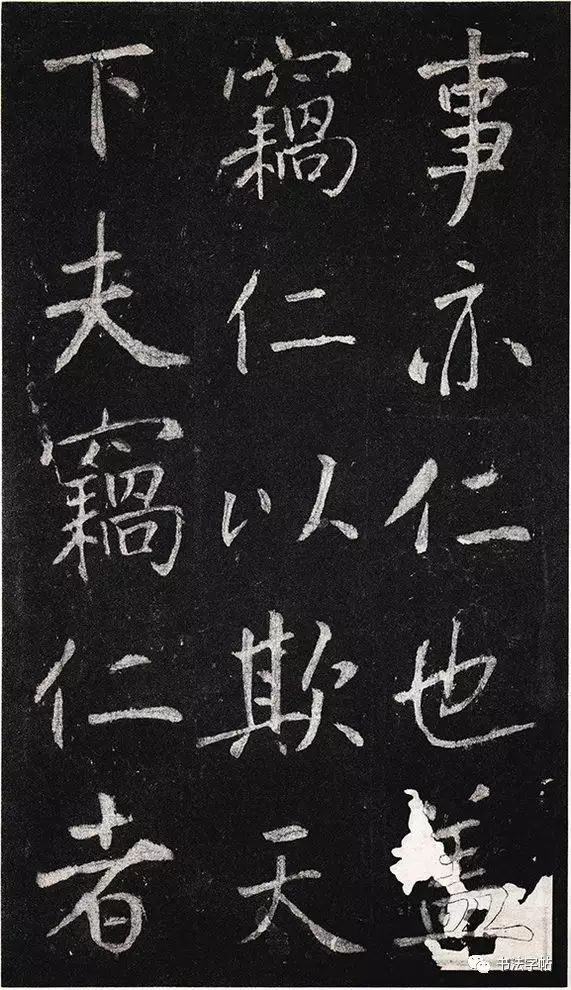 事亦仁也盖
竊仁以欺天
下夫竊仁者
书法字帖